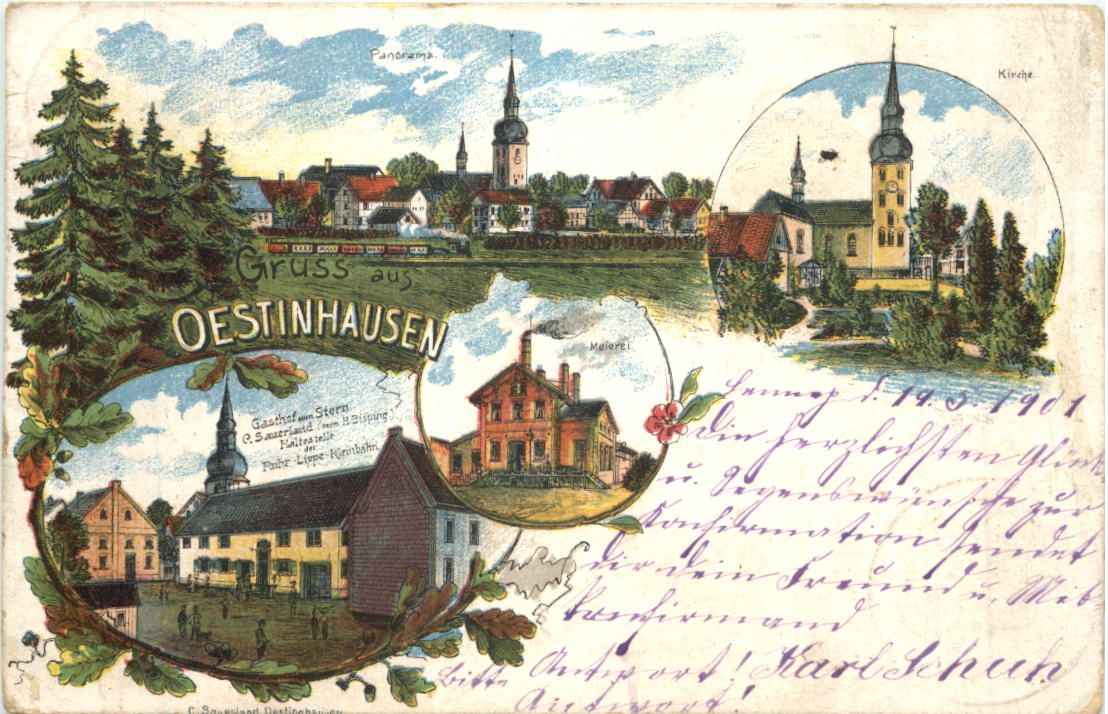 Panorama.
Kirche.
Gruss aus
OESTINHAUSEN
Meierei
Gasthof zum Stern
C. Sauerland.
Haltestelle
der
Ruhr-Lippe-Kleinbahn.
Lennep d. 19. 3. 1901
Die herzlichsten Glück
u. Segenswünsche zur
Konfirmation sendet
dir dein Freund u. Mit-
konfirmand
Bitte Antwort! Karl Schuh.
Antwort!
C. Sauerland Oestinghausen